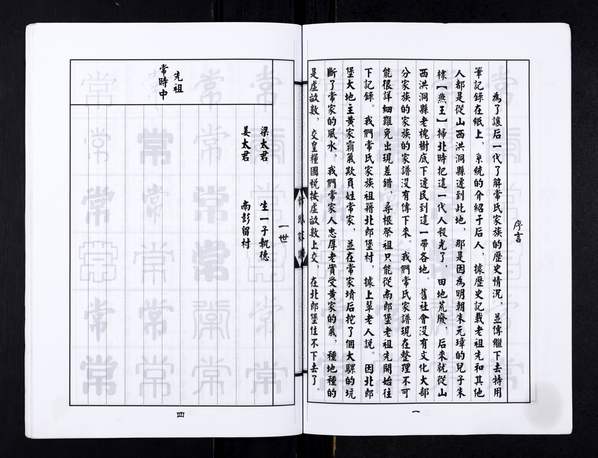 序言
為了讓后一代了解常氏家族的歷史情況，並傳繼下去特用
筆記錄在紙上，系統的介紹于后人，據歷史記載老祖先和其他
人都是從山西洪洞縣遷到此地，那是因為明朝朱元璋的兒子朱
棣【燕王】掃北時把這一代人殺光了，田地荒廢，后來就從山
西洪洞縣老槐樹底下遷民到這一帶各地，舊社會沒有文化大部
分家族的家族的家譜沒有傳下來，我們常氏家譜現在整理不可
能很詳細難免出現差錯，尋根祭祖只能從南郎堡老祖先開始往
下記錄。我們常氏家族祖籍北郎堡村，據上輩老人說，因北郎
堡大地主黃家霸氣欺負姓常家，並在常家墳后挖了個大驟的坑
斷了常家的風水，我們常家人忠厚老實受黃家的氣，種地種的
是虛畝數，交皇糧國稅按虛畝數上交，在北郎堡住不下去了。
一
常氏家譜
一世
梁太君 生一子執德
姜太君 南彭留村
先祖
常時中
四